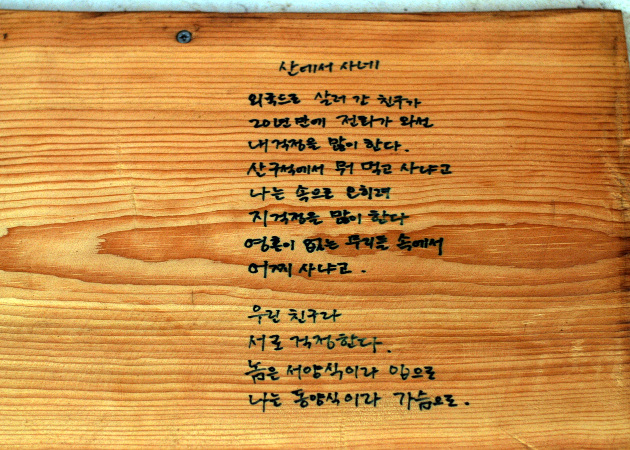 산에서 사네
외국으로 살러 간 친구가
20년만에 전화가 와선
내 걱정을 많이 한다.
산구석에서 뭐 먹고 사냐고
나는 속으로 오히려
지 걱정을 많이 한다
영혼이 없는 무리들 속에서
어찌 사냐고.
우린 친구라
서로 걱정한다.
놈은 서양식이라 입으로
나는 동양식이라 가슴으로.